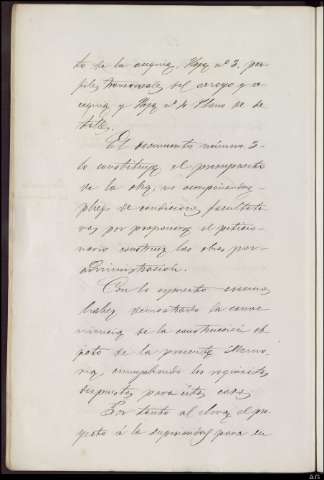 to de la acequia, Hoja nº 3. per-
files transversales del arroyo y a-
cequia y Hoja nº 4 Plano de de-
talles.
El documento número 2-
lo constituye el presupuesto
de la obra, no acompañando-
pliego de condiciones facultati-
vas por proponerse el peticio-
nario construir las obras por-
administración.
Con lo expuesto creemos
haber demostrado la conve-
niencia de la construcción ob-
jeto de la presente Memo-
ria, cumpliendo los requisitos
dispuestos para estos casos.
Por tanto al elevar el pro-
yecto á la superioridad para su